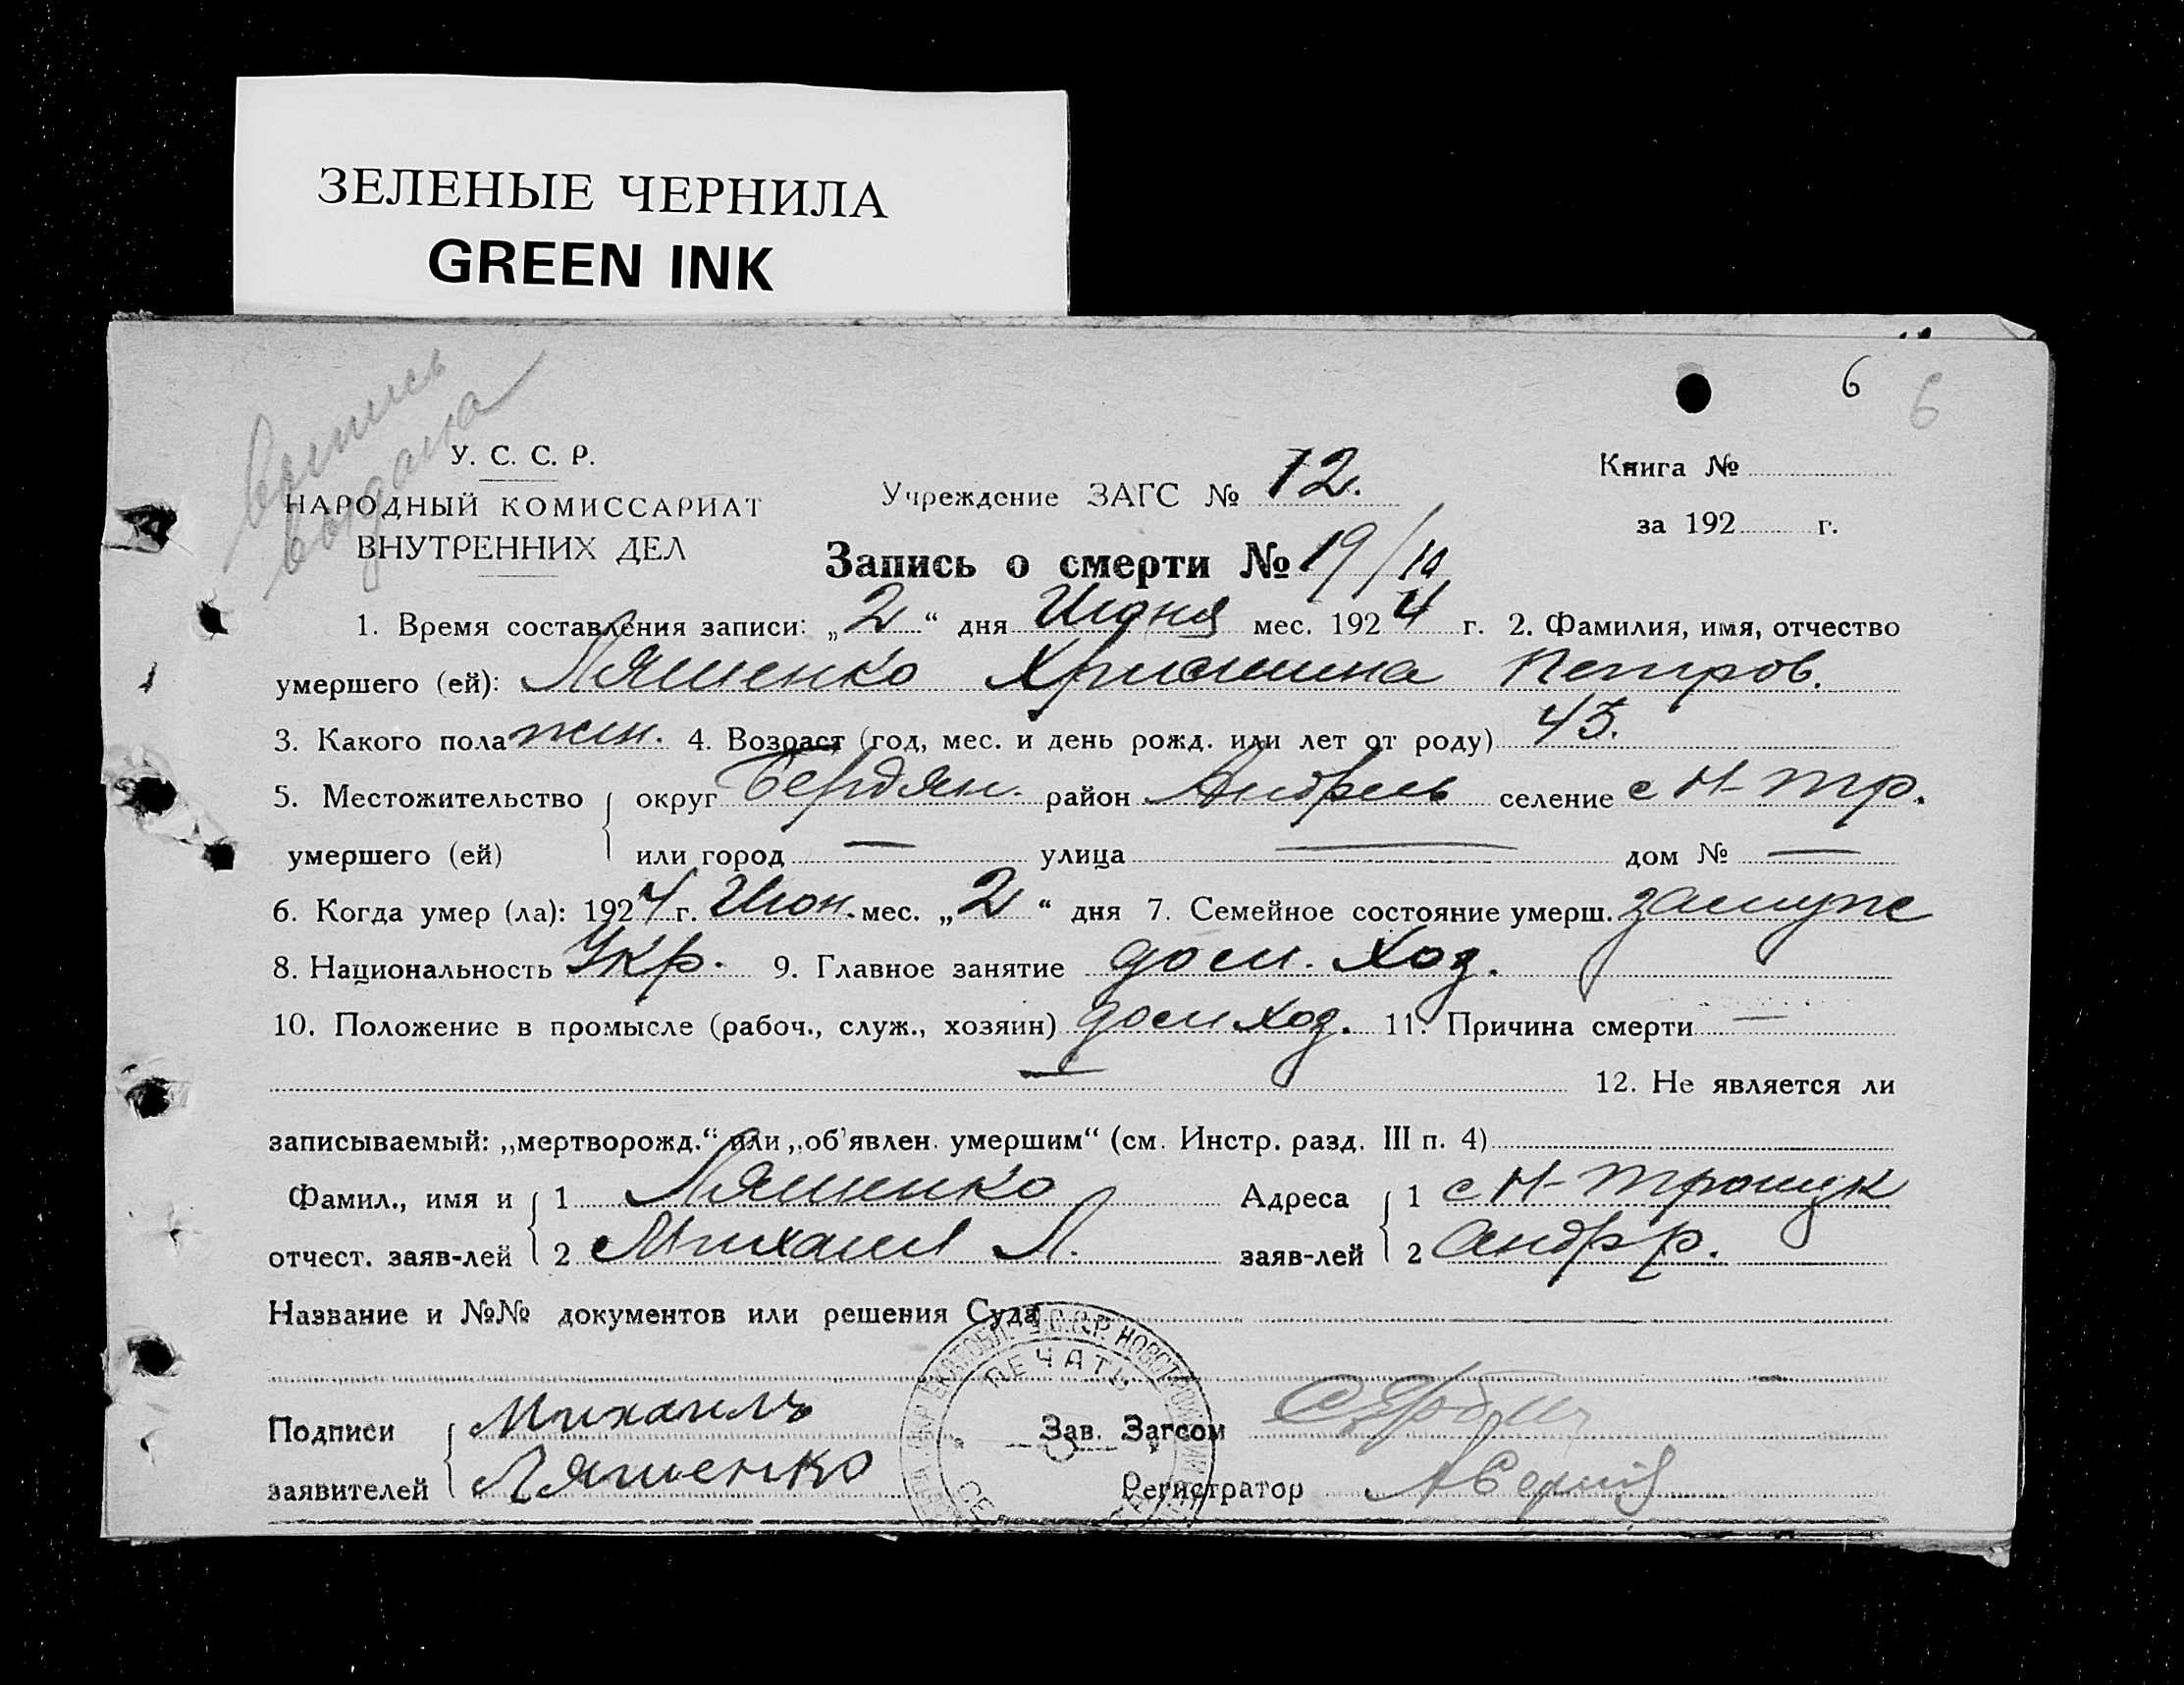 ЗЕЛЕНЫЕ ЧЕРНИЛА
GREEN INK
6 6
выпись
выдана
У. С. С. Р.
НАРОДНЫЙ КОМИССАРИАТ
ВНУТРЕННИХ ДЕЛ
Учреждение ЗАГС № 12.
Запись о смерти № 19/10
Книга №
за 192 г.
1. Время составления записи: „2“ дня Июня мес. 1924 г. 2. Фамилия, имя, отчество
умершего (ей): Ляшенко Христина Петров.
3. Какого пола жен. 4. Возраст (год, мес. и день рожд. или лет от роду) 45.
5. Местожительство округ Бердян. район Андреев селение с Н-Тр.
умершего (ей) или город — улица — дом № —
6. Когда умер (ла): 1924 г. Июн. мес. „2“ дня 7. Семейное состояние умерш. замуже
8. Национальность Укр. 9. Главное занятие дом. хоз.
10. Положение в промысле (рабоч., служ., хозяин) дом хоз. 11. Причина смерти —
— 12. Не является ли
записываемый: „мертворожд.“ или „об’явлен. умершим“ (см. Инстр. разд. III п. 4)
Фамил., имя и 1 Ляшенко Адреса 1 с Н-Троицк
отчест. заяв-лей 2 Михаил Л. заяв-лей 2 Андр р.
Название и №№ документов или решения Суда
Подписи Михаилъ Зав. Загсом
заявителей Ляшенко Регистратор
ПЕЧАТЬ